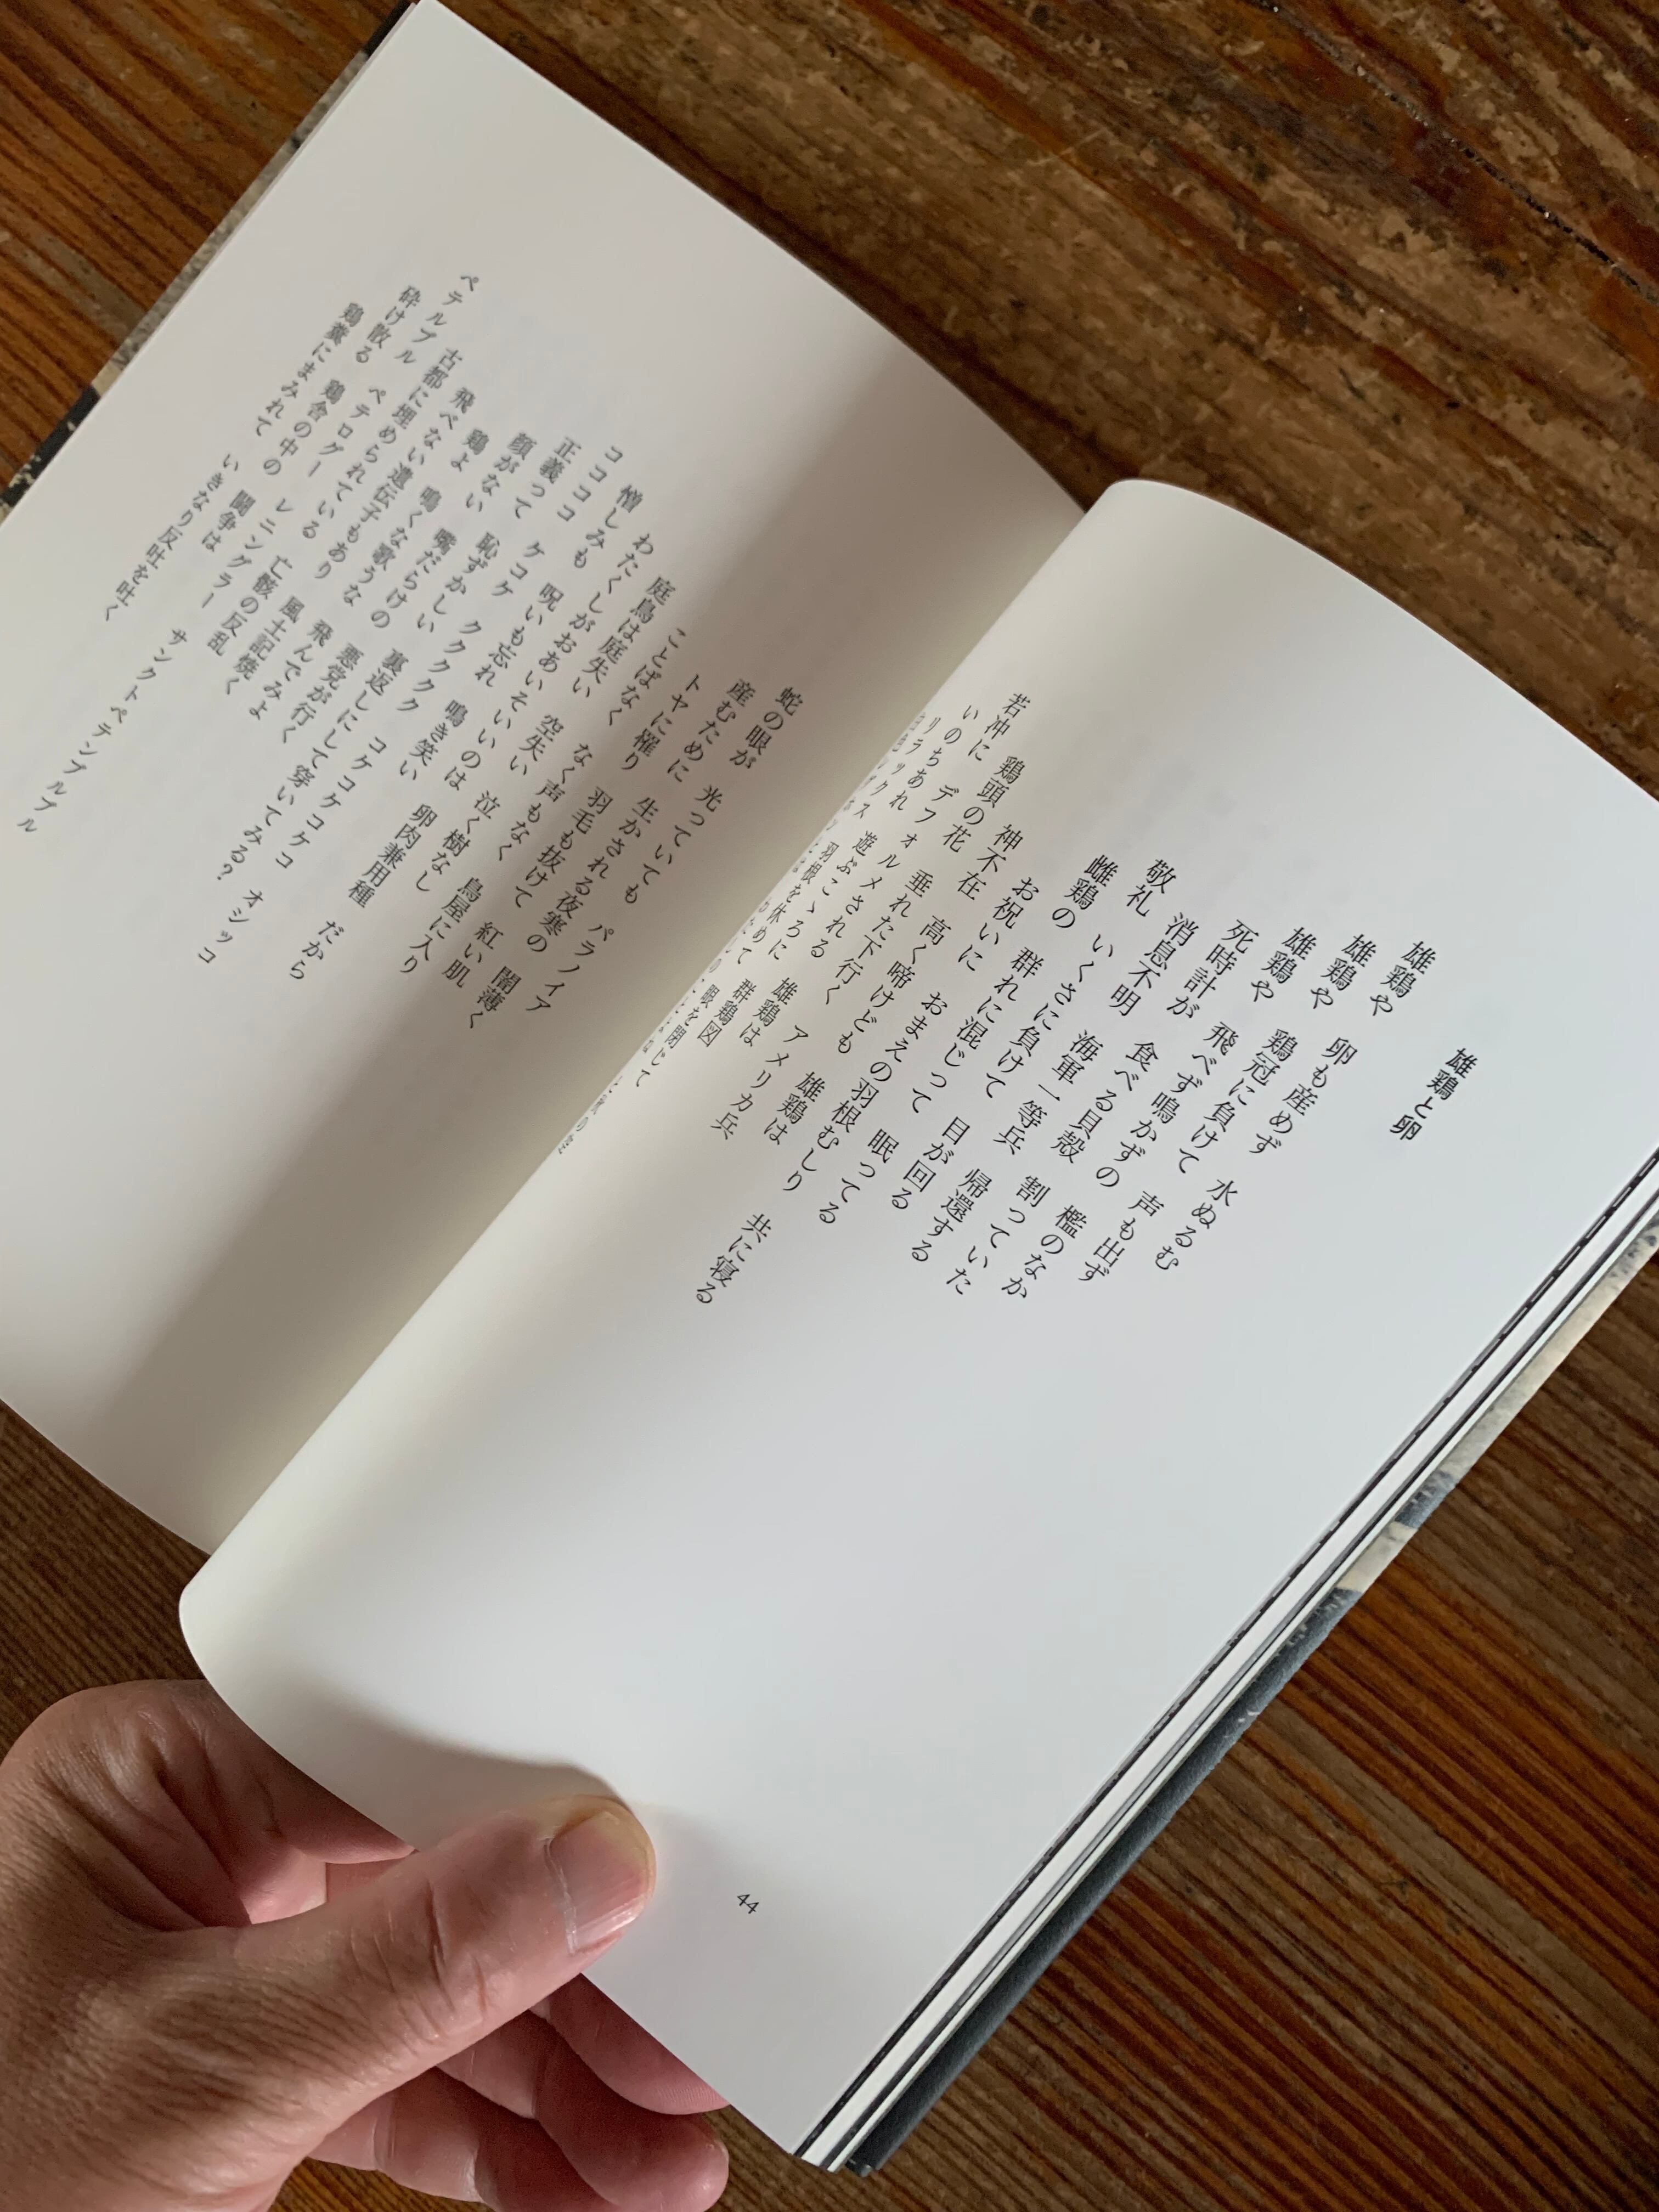 雄鶏と卵
雄鶏や 卵も産めず 水ぬるむ
雄鶏や 鶏冠に負けて 声も出ず
雄鶏や 飛べず鳴かずの 檻のなか
死時計が 食べる貝殻 割っていた
消息不明 海軍一等兵 帰還する
敬礼 いくさに負けて 目が回る
雌鶏の 群れに混じって 眠ってる
お祝いに おまえの羽根むしり 共に寝る
神不在 高く啼けども 雄鶏は
鶏頭の花 垂れた下行く アメリカ兵
若冲に デフォルメされる 雄鶏は
いのちあれ 遊ぶこゝろに 群鶏図
羽根を休めて 眼を閉じて
44
蛇の眼が 光っていても パラノイア
産むために 生かされる夜寒の 闇薄く
トヤに罹り 羽毛も抜けて 紅い肌
ことばなく なく声もなく 鳥屋に入り
庭鳥は庭失い 空失い 泣く樹なし
わたくしがおあいそいいのは 卵肉兼用種 だから
憎しみも 呪いも忘れ 鳴き笑い
ココココ ケコケ クククク コケコケコケコ オシッコ
正義って 恥ずかしい 裏返しにして 穿いてみる?
顔がない 嘴だらけの 悪党が行く
鶏よ 鳴くな歌うな 飛んでみよ
飛べない遺伝子もあり 風土記焼く
古都に埋められている 亡骸の反乱
ペテルブル ペテログー レニングラー サンクトペテンブルブル
砕け散る 鶏舎の中の 闘争は
鶏糞にまみれて いきなり反吐を吐く